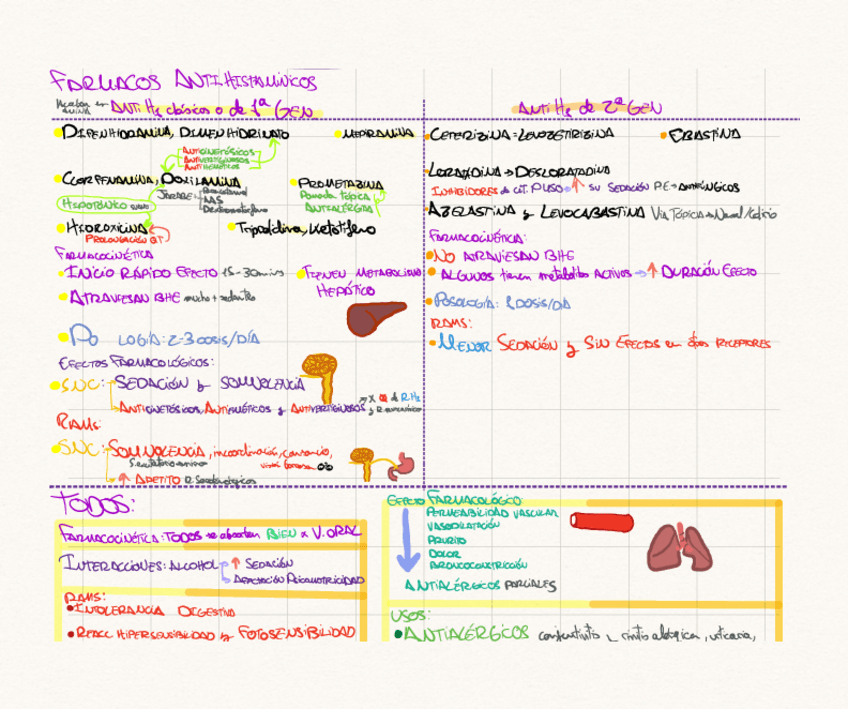 FARMACOS ANTIHISTAMÍNICOS
ANTI H1 clásicos o de 1ª GEN
DIFENHIDRAMINA, DIMENHIDRINATO
MEPRAMINA
ANTICINETÓSICOS
ANTIVERTIGINOSOS
ANTIEMÉTICOS
CLORFENAMINA, DOXILAMINA
PROMETAZINA
Pomada tópica
ANTIALÉRGICA
HIPNÓTICO
JARABE
HIDROXICINA
PROLONGACIÓN QT
Tripolidina, Ketotifeno
FARMACOCINÉTICA
INICIO RÁPIDO EFECTO 15-30mins
TIENEN METABOLISMO
HEPÁTICO
ATRAVIESAN BHE mucho + sedantes
PO LOGÍA: 2-3 DOSIS/DÍA
EFECTOS FARMACOLÓGICOS:
SNC: SEDACIÓN y SOMNOLENCIA
ANTICINETÓSICOS, ANTIEMÉTICOS y ANTIVERTIGINOSOS
RAMS:
SNC: SOMNOLENCIA, incoordinación, cansancio,
visión borrosa
↑ APETITO R. Serotoninérgicos
ANTI H1 de 2ª GEN
CETERIZINA = LEVOZETIRIZINA
EBASTINA
LORATADINA → DESLORATADINA
INHIBIDORES de CIT. P450 → ↑ SU SEDACIÓN P.E → ANTIFÚNGICOS
AZELASTINA y LEVOCABASTINA VÍA TÓPICA → Nasal/Colirio
FARMACOCINÉTICA:
NO ATRAVIESAN BHE
ALGUNOS tienen metabolitos ACTIVOS → ↑ DURACIÓN EFECTO
POSOLOGÍA: 1 DOSIS/DÍA
RAMS:
MENOR SEDACIÓN y SIN EFECTOS en otros RECEPTORES
TODOS:
FARMACOCINÉTICA: TODOS se absorben BIEN x V. ORAL
INTERACCIONES: ALCOHOL ↑ SEDACIÓN
AFECTACIÓN PSICOMOTRICIDAD
RAMS:
INTOLERANCIA DIGESTIVA
REACC HIPERSENSIBILIDAD y FOTOSENSIBILIDAD
EFECTO FARMACOLÓGICO:
PERMEABILIDAD VASCULAR
VASODILATACIÓN
PRURITO
DOLOR
BRONCOCONSTRICCIÓN
ANTIALÉRGICOS PARCIALES
USOS:
ANTIALÉRGICOS conjuntivitis, rinitis alérgica, urticaria,